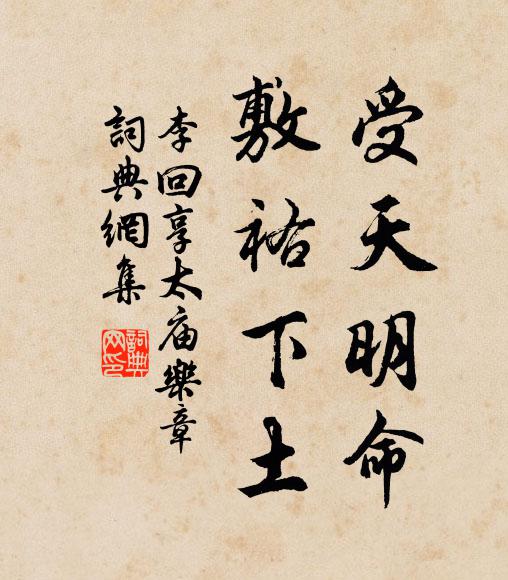 受天明命
敷祐下土
李回享太庙樂章
詞典網集
詞典
网印